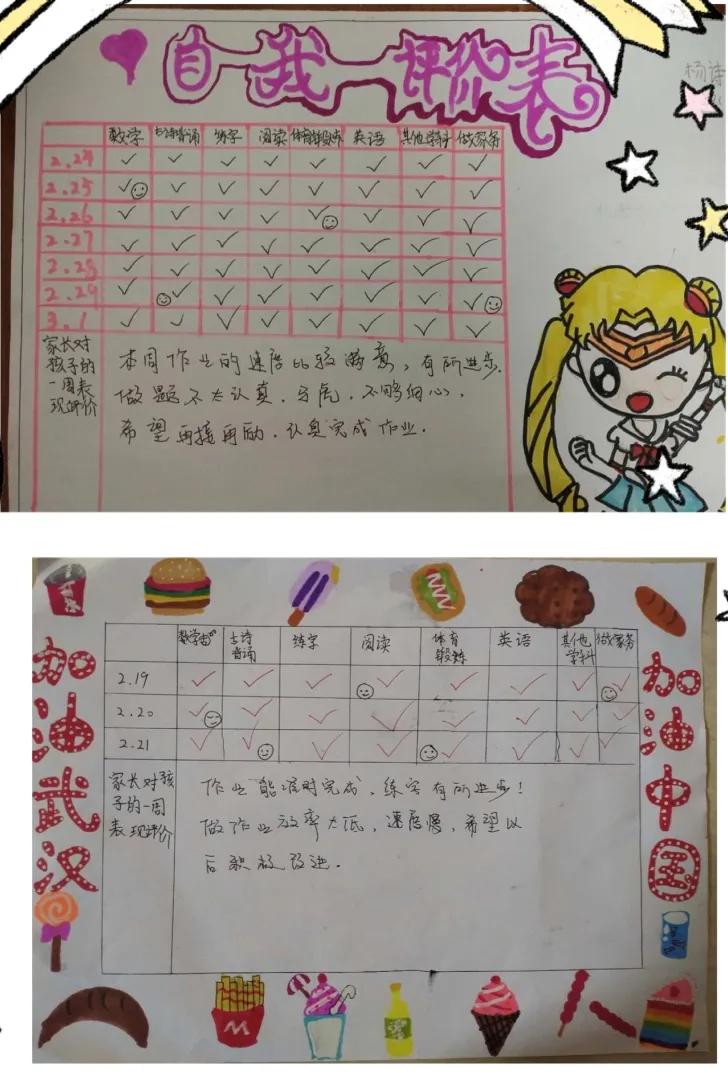 自我评价表
杨诗
数学 古诗背诵 练字 阅读 体育锻炼 英语 其他学科 做家务
2.24 ✓ ✓ ✓ ✓ ✓ ✓ ✓ ✓
2.25 ✓ ✓ ✓ ✓ ✓ ✓ ✓ ✓
2.26 ✓ ✓ ✓ ✓ ✓ ✓ ✓ ✓
2.27 ✓ ✓ ✓ ✓ ✓ ✓ ✓ ✓
2.28 ✓ ✓ ✓ ✓ ✓ ✓ ✓ ✓
2.29 ✓ ✓ ✓ ✓ ✓ ✓ ✓ ✓
3.1 ✓ ✓ ✓ ✓ ✓ ✓ ✓ ✓
家长对
孩子的
一周表
现评价
本周作业的速度比较满意，有所进步.
做题不太认真，马虎，不够细心，
希望再接再励，认真完成作业.
加油武汉
数学
古诗
背诵
练字
阅读
体育
锻炼
英语
其他
学科
做家务
2.19 ✓ ✓ ✓ ✓ ✓ ✓ ✓ ✓
2.20 ✓ ✓ ✓ ✓ ✓ ✓ ✓ ✓
2.21 ✓ ✓ ✓ ✓ ✓ ✓ ✓ ✓
家长对孩
子的一周
表现评价
作业能准时完成，练字有所进步！
做作业效率太低，速度慢，希望以
后积极改进.
加油中国